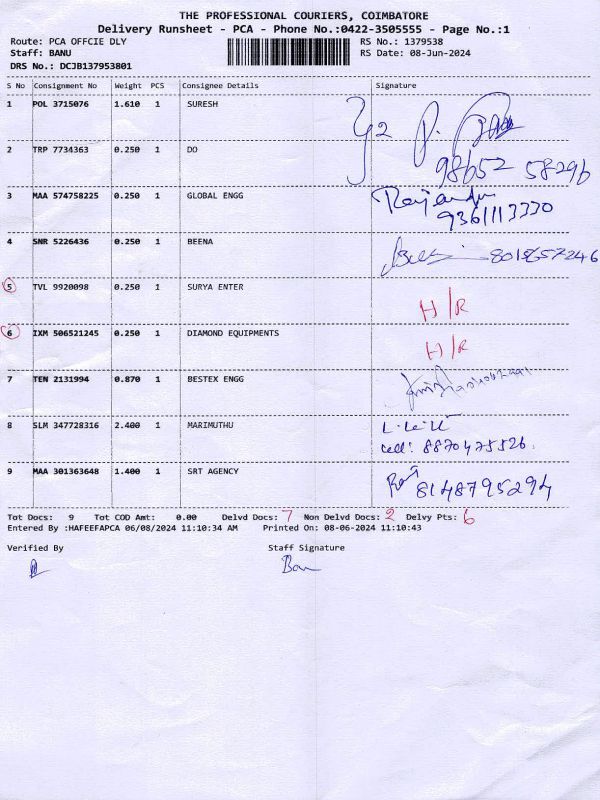 THE PROFESSIONAL COURIERS, COIMBATORE
Delivery Runsheet - PCA - Phone No.:0422-3505555 - Page No.:1
Route: PCA OFFCIE DLY RS No.: 1379538
Staff: BANU RS Date: 08-Jun-2024
DRS No.: DCJB137953801
S No Consignment No Weight PCS Consignee Details Signature
1 POL 3715076 1.610 1 SURESH
2 TRP 7734363 0.250 1 DO
98652 58296
3 MAA 574758225 0.250 1 GLOBAL ENGG
9361113330
4 SNR 5226436 0.250 1 BEENA
5 TVL 9920098 0.250 1 SURYA ENTER H/R
6 IXM 506521245 0.250 1 DIAMOND EQUIPMENTS H/R
7 TEN 2131994 0.870 1 BESTEX ENGG
8 SLM 347728316 2.400 1 MARIMUTHU
cell: 8870475526.
9 MAA 301363648 1.400 1 SRT AGENCY 8148795294
Tot Docs: 9 Tot COD Amt: 0.00 Delvd Docs: 7 Non Delvd Docs: 2 Delvy Pts: 6
Entered By :HAFEEFAPCA 06/08/2024 11:10:34 AM Printed On: 08-06-2024 11:10:43
Verified By Staff Signature